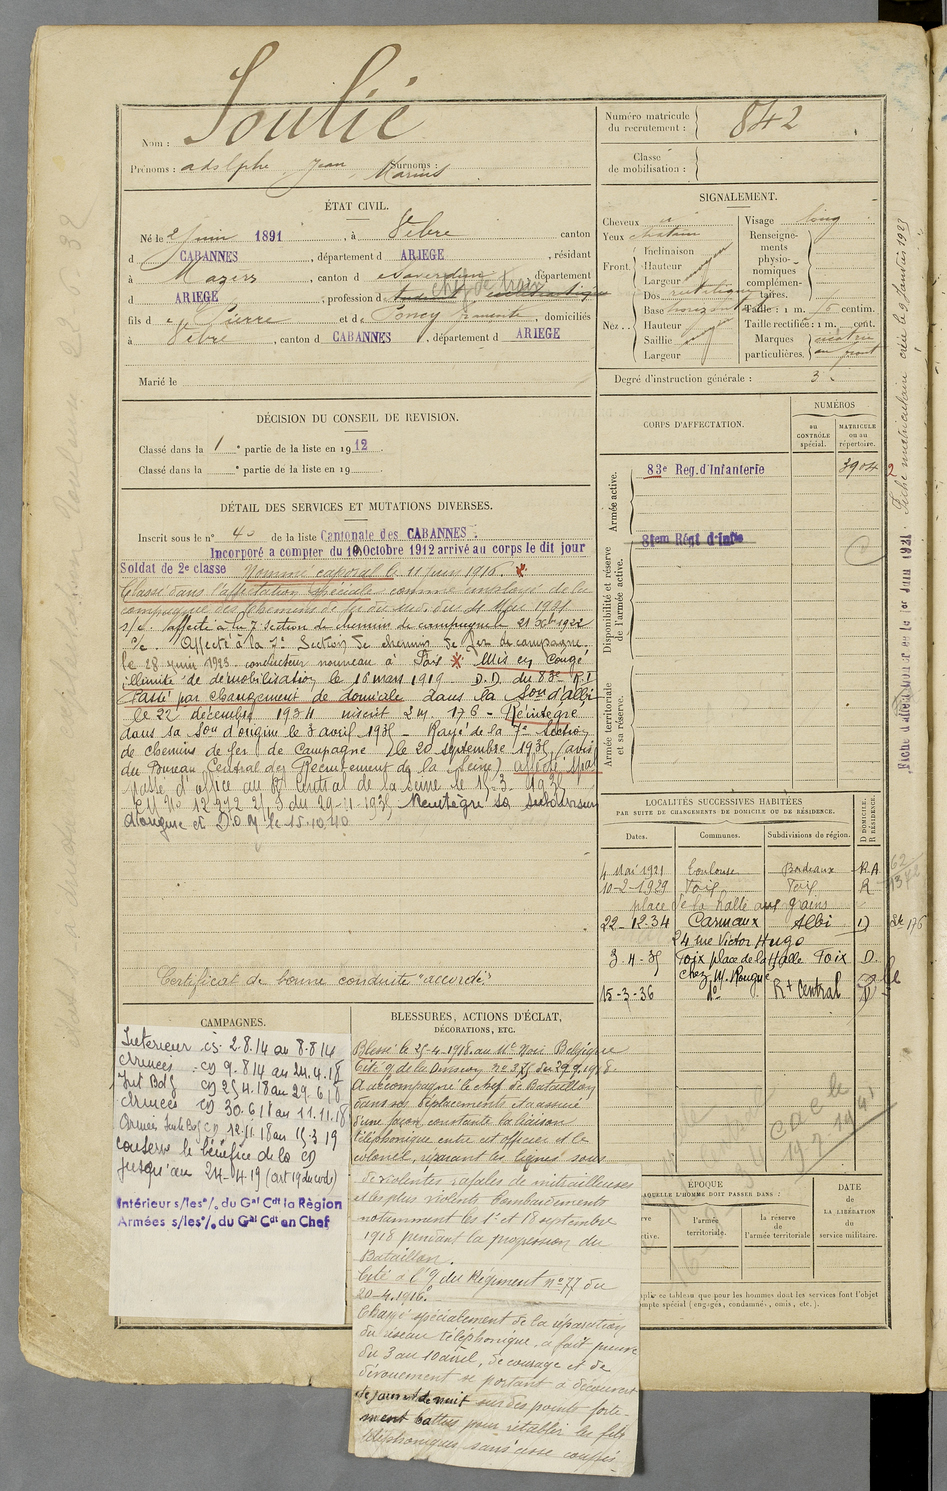 Nom : Soulié
Prénoms : adolphe Jean Marius
Surnoms :
Numéro matricule du recrutement : 842
Classe de mobilisation :
ÉTAT CIVIL.
Né le 2 Juin 1891, à Verbre canton
d CABANNES, département d ARIEGE, résidant
à Mazères, canton d e Saverdun, département
d ARIEGE, profession d étudiant ecclésiastique
fils d e Pierre et d e Poncy, domiciliés
à, canton d CABANNES, département d ARIEGE
Marié le
SIGNALEMENT.
Cheveux
Yeux chatain
Front. Inclinaison
Hauteur
Largeur
Nez .. Dos rectiligne
Base horizontale
Hauteur
Saillie
Largeur
Visage long
Renseigne-
ments
physio-
nomiques
complémen-
taires.
Taille : 1 m. centim.
Taille rectifiée : 1 m. cent.
Marques particulières. cicatrice au front
Degré d'instruction générale : 3
DÉCISION DU CONSEIL DE REVISION.
Classé dans la 1e partie de la liste en 1912.
Classé dans la e partie de la liste en 19
CORPS D'AFFECTATION.
NUMÉROS
au CONTRÔLE spécial.
MATRICULE ou au répertoire.
Armée active.
83e Reg. d'Infanterie 3904
Disponibilité et réserve de l'armée active.
81em Régt d'Infie
Armée territoriale et sa réserve.
DÉTAIL DES SERVICES ET MUTATIONS DIVERSES.
Inscrit sous le n° 40 de la liste Cantonale des CABANNES.
Incorporé à compter du 10 Octobre 1912 arrivé au corps le dit jour
Soldat de 2e classe Nommé caporal le 11 Juin 1916.
Classé dans l'affectation spéciale comme employé de la
compagnie des Chemins de fer du Midi, du 21 Mai 1921
s/c. affecté à la 7e section de chemins de campagne le 21 8bre 1922
s/c. Affecté à la 7e Section de chemins de fer de campagne
le 28 juin 1923. conducteur nouveau à Foix Mis en Congé
illimité de démobilisation le 16 mars 1919 - D.D. du 83e R.I
Passé par changement de domicile dans la Son d'albi
le 22 décembre 1934 inscrit 24 176 - Réintégré
dans sa Son d'origine le 3 avril 1935 - Rayé de la 7e Section
de chemins de fer de Campagne le 20 septembre 1935 (avis
du Bureau Central de Recrutement de la Seine) affecté spécial
Passé d'office au Rt Central de la Seine le 15-3-1936
Réintègre sa subdivision
d'origine et D.O.M le 15.10.40
Certificat de bonne conduite "accordé"
LOCALITÉS SUCCESSIVES HABITÉES
PAR SUITE DE CHANGEMENTS DE DOMICILE OU DE RÉSIDENCE.
Dates. Communes. Subdivisions de région. D DOMICILE. R RÉSIDENCE
4 Mai 1921 Toulouse Bordeaux R.A
10-2-1929 Foix Foix R
place de la halle aux grains
22-12-34 Carmaux Albi D 24 176
24 rue Victor Hugo
3-4-35 Foix place de la Halle Foix D.
chez M. Rouque
15-3-36 do Rt Central D
Fiche matriculaire créée le 9 Janvier 1923
CAMPAGNES.
Intérieur CS. 2.8.14 au 8.8.14
Armées CD 9.8.14 au 24.4.18
Int Bdg CD 25.4.18 au 29.6.18
Armées CD 30.6.18 au 11.11.18
CD 12.11.18 au 15.3.19
conserve le bénéfice de la CD
jusqu'au 24-4-19 (art 19 du code)
Intérieur s/les °/° du Gal Cdt la Région
Armées s/les °/° du Gal Cdt en Chef
BLESSURES, ACTIONS D'ÉCLAT, DÉCORATIONS, ETC.
Blessé le 25-4-1918. au Mt Noir Belgique
Cité O. de la Division no 375 du 29.9.1918.
A accompagné le chef de Bataillon
dans ses déplacements et a assuré
d'une façon constante la liaison
téléphonique entre cet officier et le
colonel, réparant les lignes sous
de violentes rafales de mitrailleuses
et les plus violents bombardements
notamment les 1er et 18 septembre
1918 pendant la progression du
Bataillon.
Cité à l'O. du Régiment no 77 du
20-4.1916.
Chargé spécialement de la réparation
du réseau téléphonique, a fait preuve
du 3 au 10 avril, de courage et de
dévouement se portant à découvert
de jour et de nuit sur des points forte-
ment battus pour rétablir les fils
téléphoniques sans cesse coupés.
ÉPOQUE
À LAQUELLE L'HOMME DOIT PASSER DANS :
l'armée territoriale.
la réserve de l'armée territoriale
DATE DE LA LIBÉRATION du service militaire.
plir ce tableau que pour les hommes dont les services font l'objet
mpte spécial (engagés, condamnés, omis, etc.).